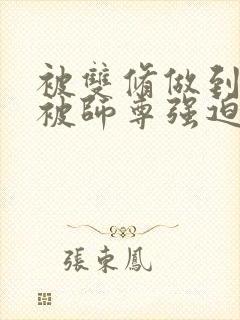 被雙脩做到
被師尊强迫
張束鳳